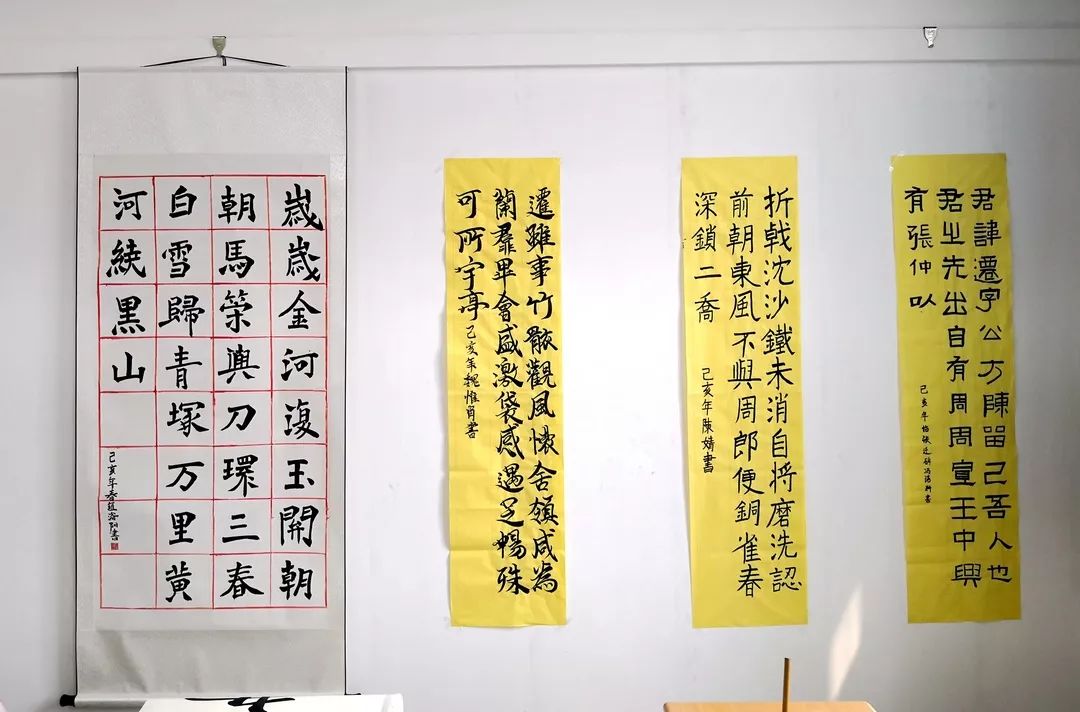 嵗嵗金河復玉開朝
朝馬策與刀環三春
白雪歸青塚万里黃
河繞黑山
己亥年春書
遷雖事竹骸觀風懷舍領咸為
蘭羣畢會盛激袋感遇足暢殊
可所宇亭
己亥年魏惟肖書
折戟沈沙鐵未消自將磨洗認
前朝東風不與周郎便銅雀春
深鎖二喬
己亥年陳婧書
君諱遷字公方陳留己吾人也
君之先出自有周周宣王中興
有張仲以
己亥年臨張遷碑書